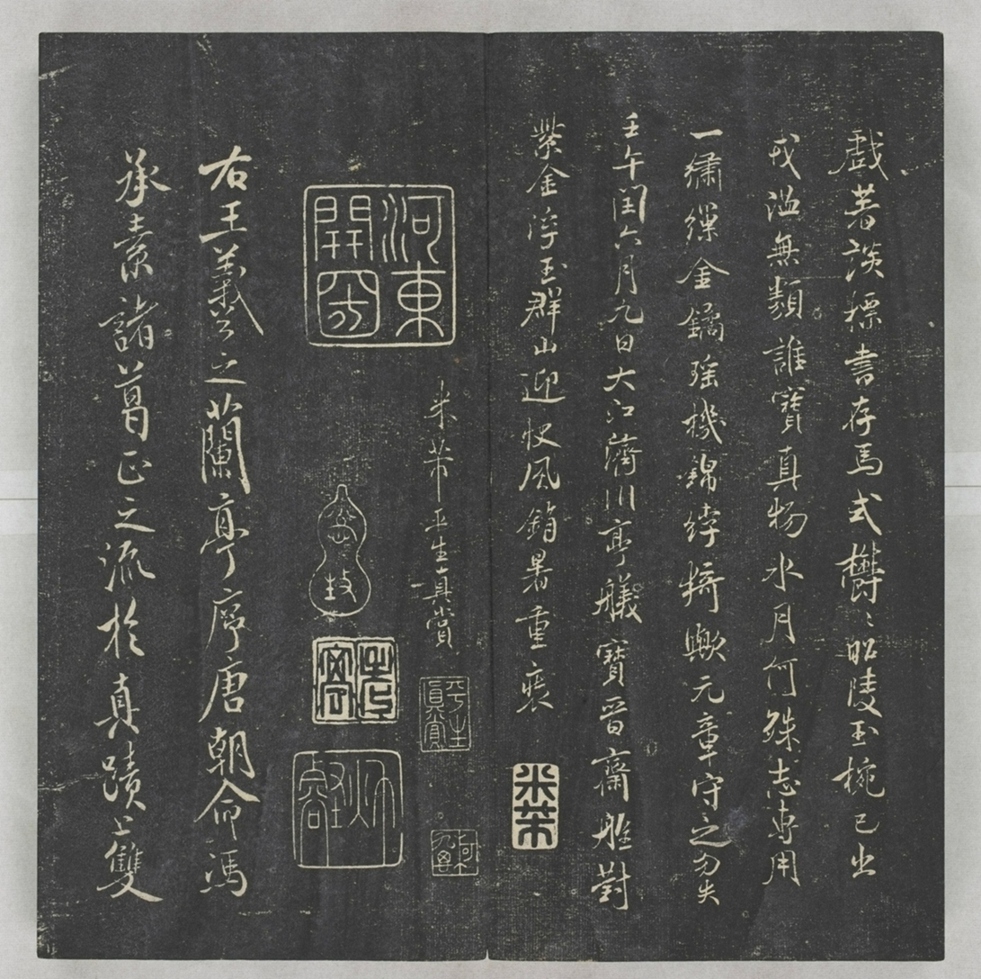 戲著談標書存馬式欝〻昭陵玉椀已出
戎溫無類誰寶真物水月何殊志專用
一繡繅金鐍瑶機錦綍猗歟元章守之勿失
壬午閏六月九日大江濟川亭艤寶晉齋舫對
紫金浮玉群山迎快風銷暑重裝
米芾
米芾平生真賞
平生真賞
河東開國
右王羲之蘭亭序唐朝命馮
承素諸葛正之流於真蹟上雙